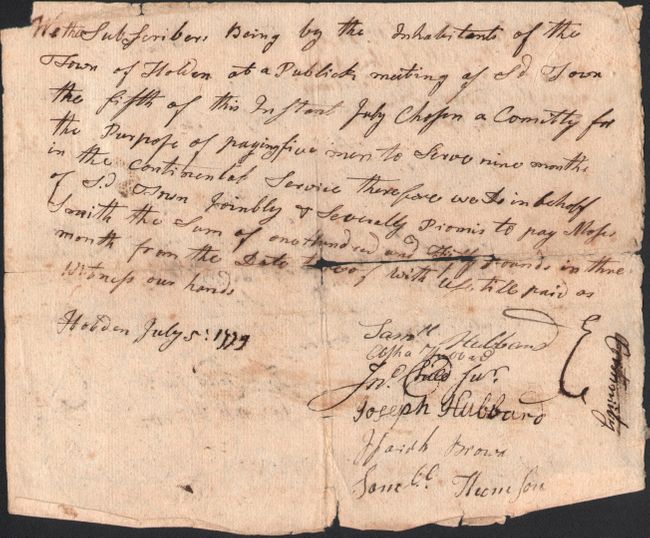 We the Subscribers Being by the Inhabitants of the
Town of Holden at a Publick meeting of Sd Town
the fifth of this Instant July Chosen a Comitty for
the Purpose of paying five men to Serve nine months
in the Continental Service therefore we Do in behalf
of Sd Town Joinbly & Severally Promis to pay Moses
Smith the Sum of one hundred and fifty Pounds in three
month from the Date hereof with Use till paid as
Witness our hands
Holden July 5: 1779
Samll Hubbard
Elisha Hubbard
Jno Child Jur.
Joseph Hubbard
Isaiah Brown
Samll Thomson
Committy